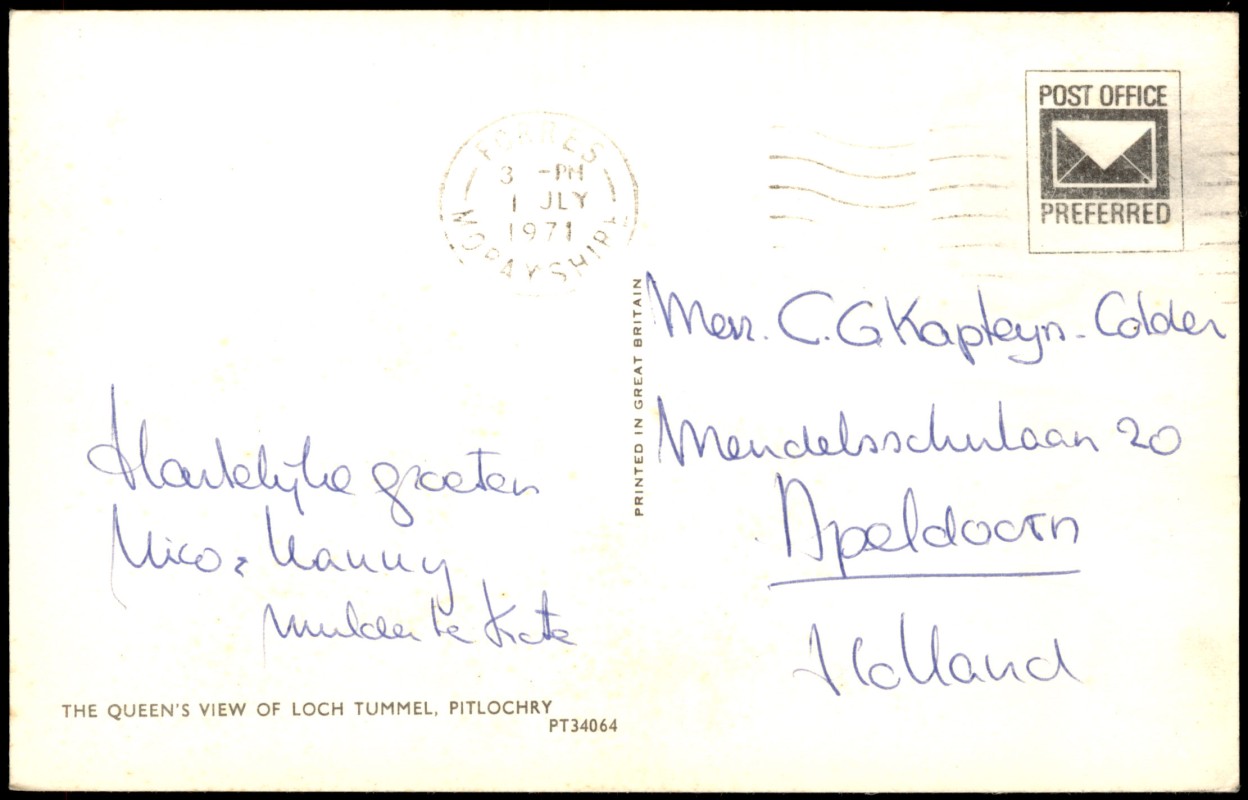 FORRES
3 -PM
1 JLY
1971
MORAYSHIRE
POST OFFICE
PREFERRED
PRINTED IN GREAT BRITAIN
Hartelijke groeten
Nico & Nanny
Mulder te Kate
Mevr. C. G Kapteyn-Colder
Mendelsschnlaan 20
Apeldoorn
Holland
THE QUEEN'S VIEW OF LOCH TUMMEL, PITLOCHRY
PT34064